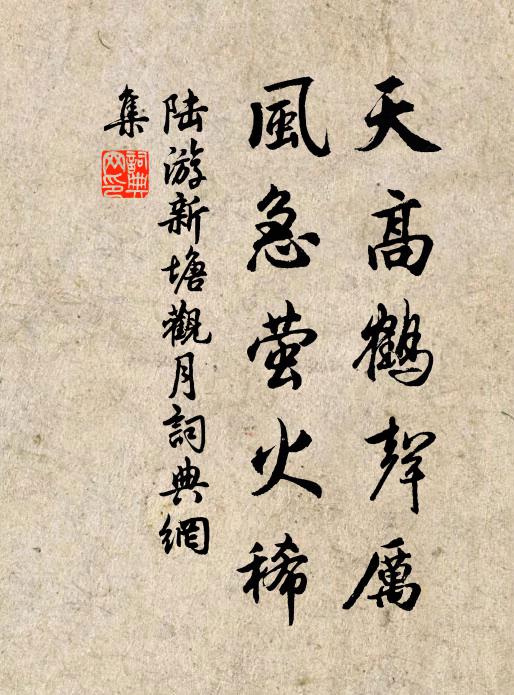 天高鹤聲厲
風急萤火稀
陆游新塘觀月詞典網
集
詞典
网印